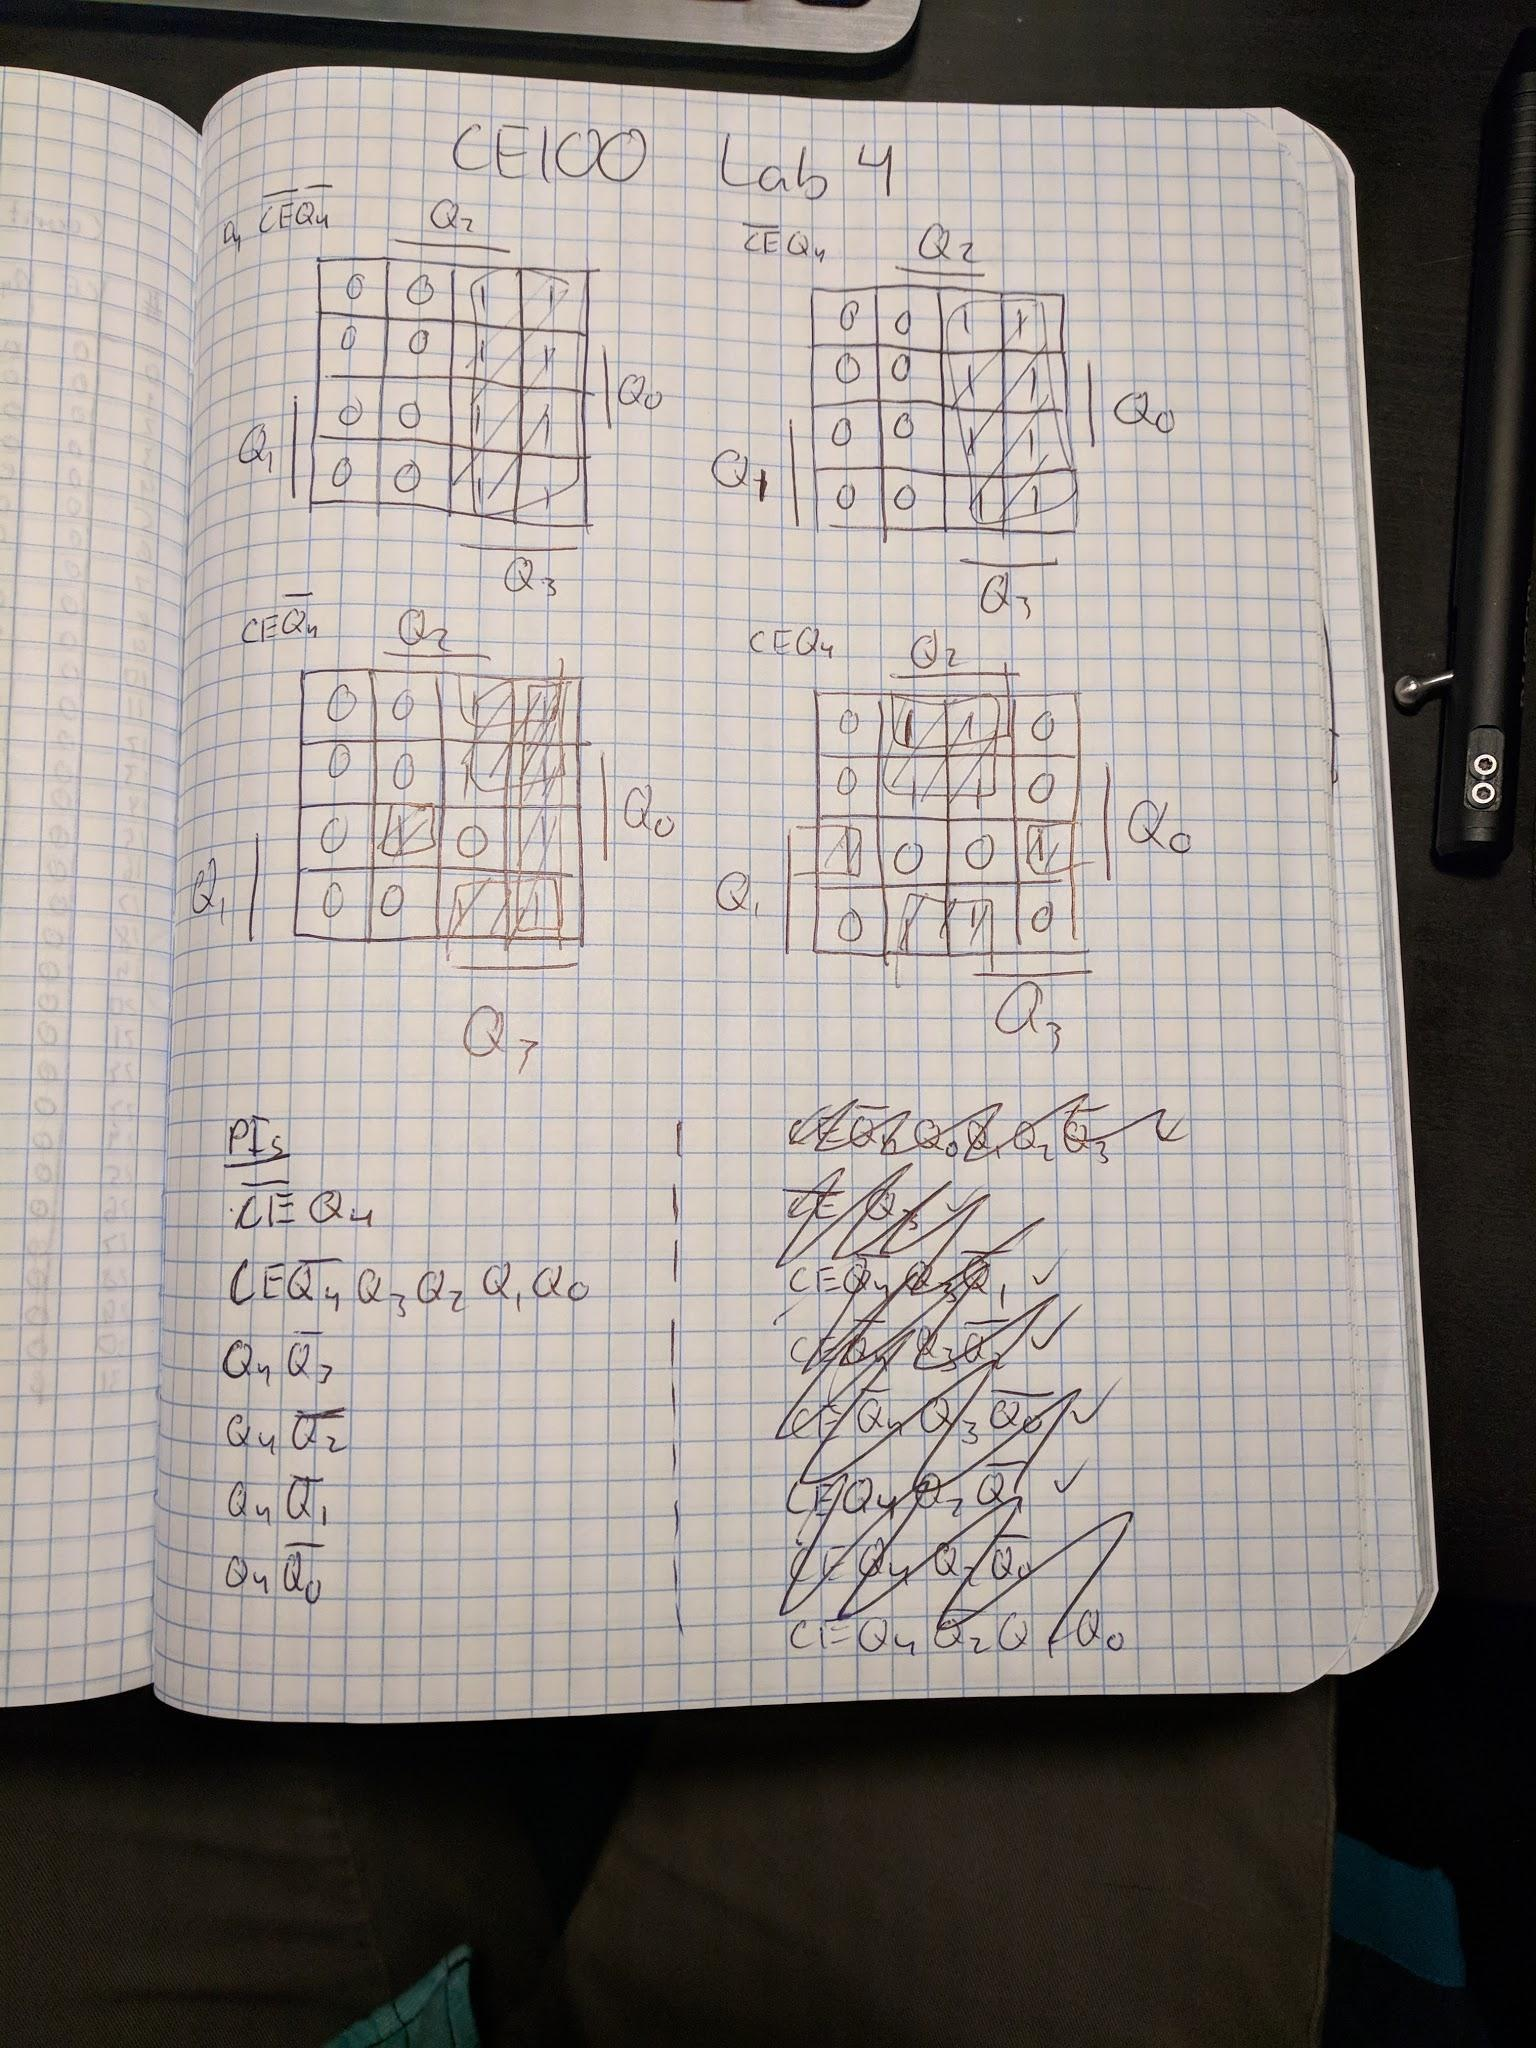 CE100 Lab 4
a, C̅E̅Q̅₄ Q₂
0 0 1 1
0 0 1 1
Q₀
0 0 1 1
Q₁
0 0 1 1
Q₃
C̅E̅Q₄ Q₂
0 0 1 1
0 0 1 1
Q₀
0 0 1 1
Q₁
0 0 1 1
Q₃
CEQ̅₄ Q₂
0 0 1 1
0 0 1 1
Q₀
0 1 0 1
Q₁
0 0 1 1
Q₃
CEQ₄ Q₂
0 1 1 0
0 1 1 0
Q₀
1 0 0 1
Q₁
0 1 1 0
Q₃
PIs
C̅E̅ Q₄
CEQ̅₄ Q₃ Q₂ Q₁ Q₀
Q₄ Q̅₃
Q₄ Q̅₂
Q₄ Q̅₁
Q₄ Q̅₀
CEQ̅₄ Q₀ Q₁ Q₂ Q̅₃ ✓
C̅E̅ Q₃ ✓
CEQ̅₄ Q₃ Q̅₁ ✓
CEQ̅₄ Q₃ Q̅₂ ✓
CEQ̅₄ Q₃ Q̅₀ ✓
CEQ₄ Q₂ Q̅₁ ✓
CEQ₄ Q₂ Q̅₀
CEQ₄ Q̅₂ Q₁ Q₀